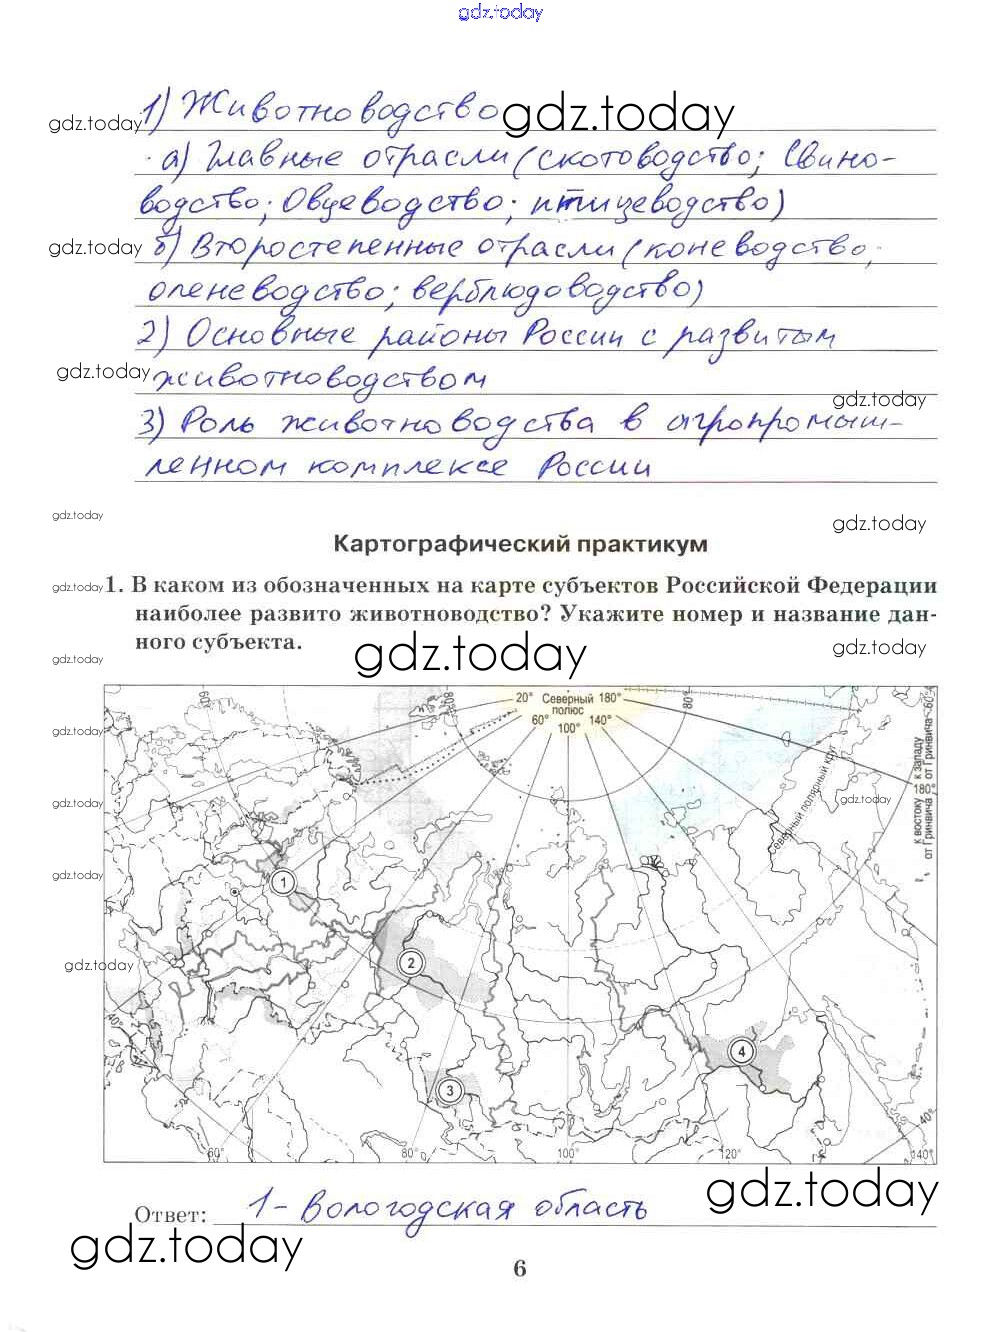 gdz.today
1) Животноводство gdz.today
gdz.today
а) Главные отрасли (скотоводство; Свино-
водство; Овцеводство; птицеводство)
gdz.today б) Второстепенные отрасли (коневодство;
оленеводство; верблюдоводство)
2) Основные районы России с развитым
gdz.today животноводством
gdz.today
3) Роль животноводства в агропромыш-
ленном комплексе России
gdz.today
gdz.today
Картографический практикум
gdz.today 1. В каком из обозначенных на карте субъектов Российской Федерации
наиболее развито животноводство? Укажите номер и название дан-
ного субъекта.
gdz.today
gdz.today
gdz.today
60° 80° 20° Северный полюс 180° 80° 60°
60° 100° 140°
gdz.today
к западу от Гринвича
180°
к востоку от Гринвича
Северный полярный круг
gdz.today
gdz.today
gdz.today
1
2
gdz.today
3
4
40° 60° 80° 100° 120° 140° 40°
Ответ: 1 - Вологодская область
gdz.today
gdz.today
6